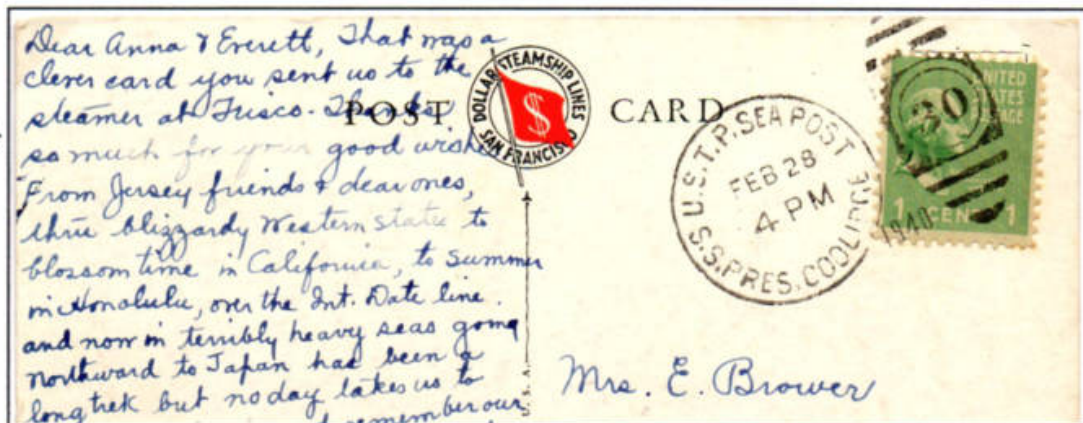 Dear Anna & Everett, That was a
clever card you sent us to the
steamer at Frisco. Thanks
so much for your good wishes
From Jersey friends & dear ones,
thru blizzardy Western states to
blossom time in California, to summer
in Honolulu, over the Int. Date line.
and now in terribly heavy seas going
northward to Japan has been a
long trek but no day takes us to
remember our
POST CARD
DOLLAR STEAMSHIP LINES
$
SAN FRANCISCO
U.S.T.P. SEA POST
FEB 28
4 PM
1940
S.S. PRES. COOLIDGE
30
UNITED
STATES
POSTAGE
1 CENT 1
U.S.A.
Mrs. E. Brower